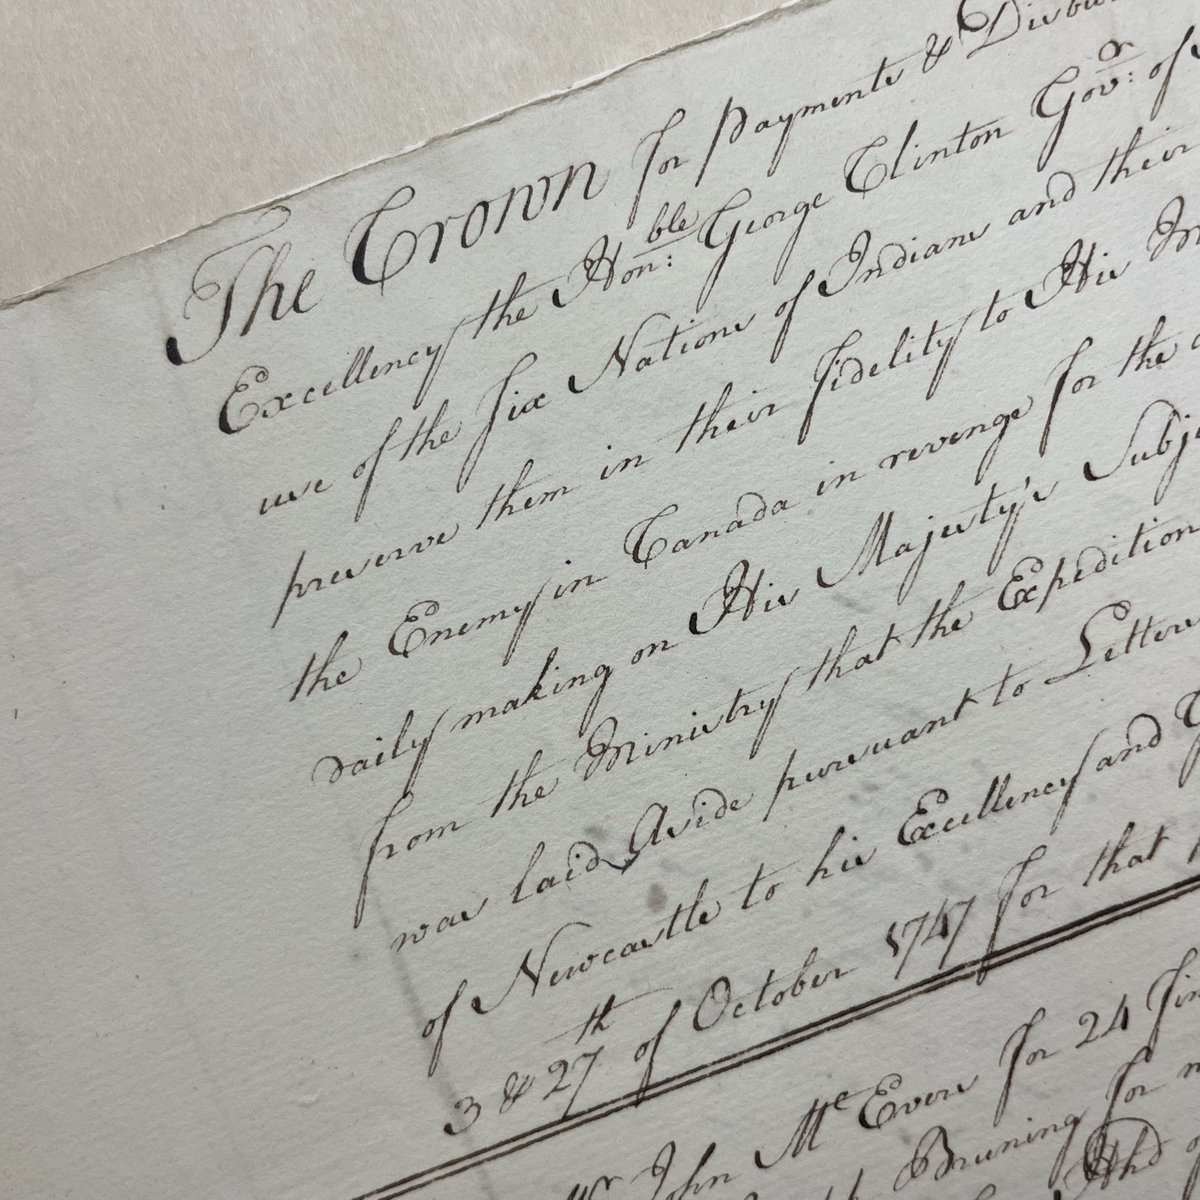 The Crown for Payments &
Excellency the Honble: George Clinton Govr: of
use of the six Nations of Indians and their
preserve them in their fidelity to His
the Enemy in Canada in revenge for the
daily making on His Majesty's
from the Ministry that the Expedition
was laid Aside pursuant to Letters
of Newcastle to his Excellency and
3 & 27th of October 1747 for that
John Mc Evers for 24
Bruning for